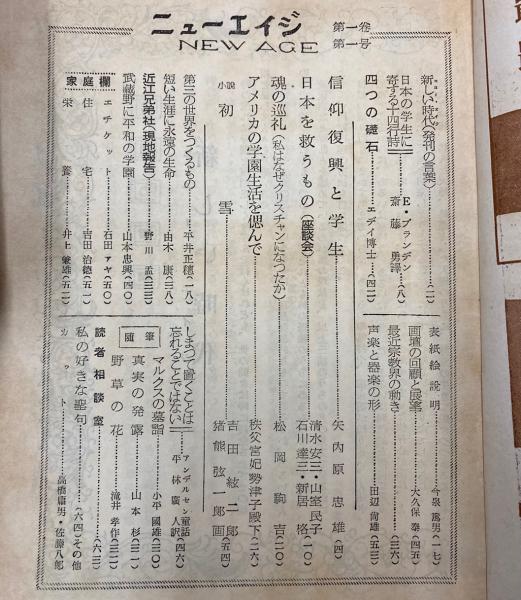 ニューエイジ
NEW AGE
第一卷
第一号
新しい時代(発刊の言葉)…(二)
日本の学生に寄する十四行詩 E・ブランデン 齋藤勇譯…(八)
四つの礎石…エディ博士…(四二)
表紙絵説明…今泉篤男(一七)
画壇の回顧と展望…大久保泰(四五)
最近宗教界の動き…(三六)
声楽と器楽の形…田辺尚雄(五三)
信仰復興と学生…矢内原忠雄(四)
日本を救うもの(座談会)…清水安三・山室民子 石川達三・新居格(一〇)
魂の巡礼(私はなぜクリスチャンになつたか)…松岡駒吉(二〇)
アメリカの学園生活を偲んで…秩父宮妃勢津子殿下(二六)
小説 初雪…吉田絃二郎 猪熊弦一郎画(五四)
第三の世界をつくるもの…平井正穂(一八)
短い生涯に永遠の生命…由木康(三八)
近江兄弟社(現地報告)…野川孟(三三)
武蔵野に平和の学園…山本忠興(四〇)
家庭欄
エチケット…石田アヤ(五〇)
住宅…吉田治德(五一)
栄養…井上兼雄(五二)
しまつて置くことは忘れることではない…アンデルセン童話 平林廣人訳(四六)
随筆
マルクスの墓詣…小平國雄(三〇)
真実の発露…山本杉(三一)
野草の花…滝井孝作(三二)
読者相談室…(六二)
私の好きな聖句…(六四)その他
カット…高橋庸男・佐藤八郎